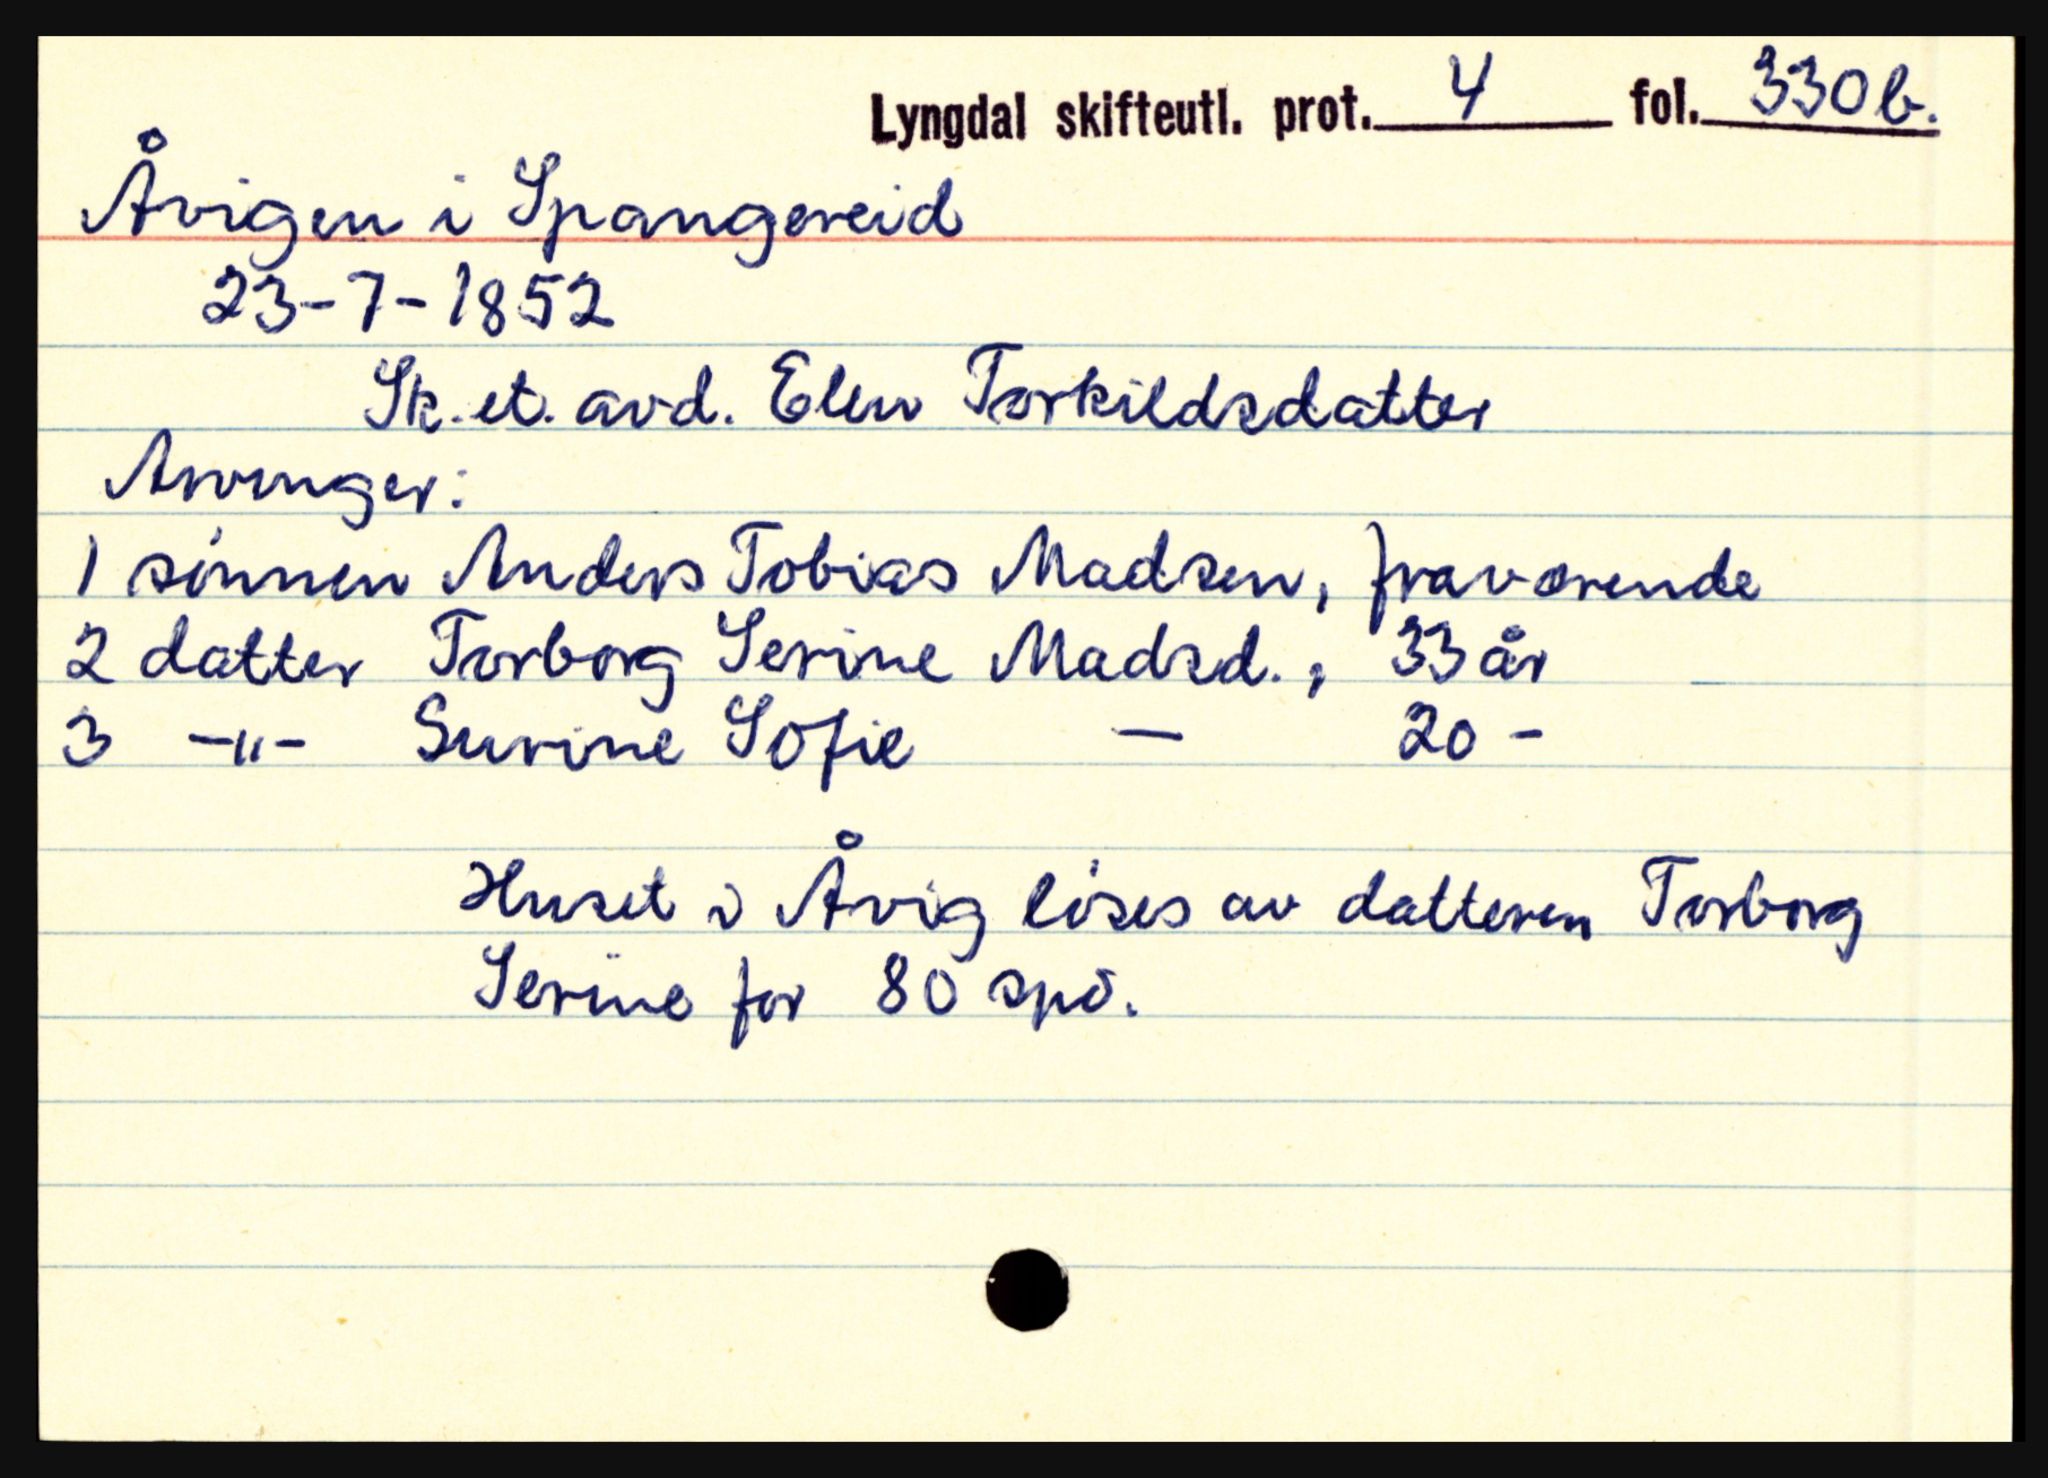 Lyngdal skifteutl. prot. 4 fol. 330b.
Åvigen i Spangereid
23-7-1852
Sk. et. avd. Elen Torkildsdatter
Arvinger:
1 sønnen Anders Tobias Madsen, fraværende
2 datter Torborg Serine Madsd., 33 år
3 -"- Surine Sofie — 20 -
Huset i Åvig løses av datteren Torborg
Serine for 80 spd.